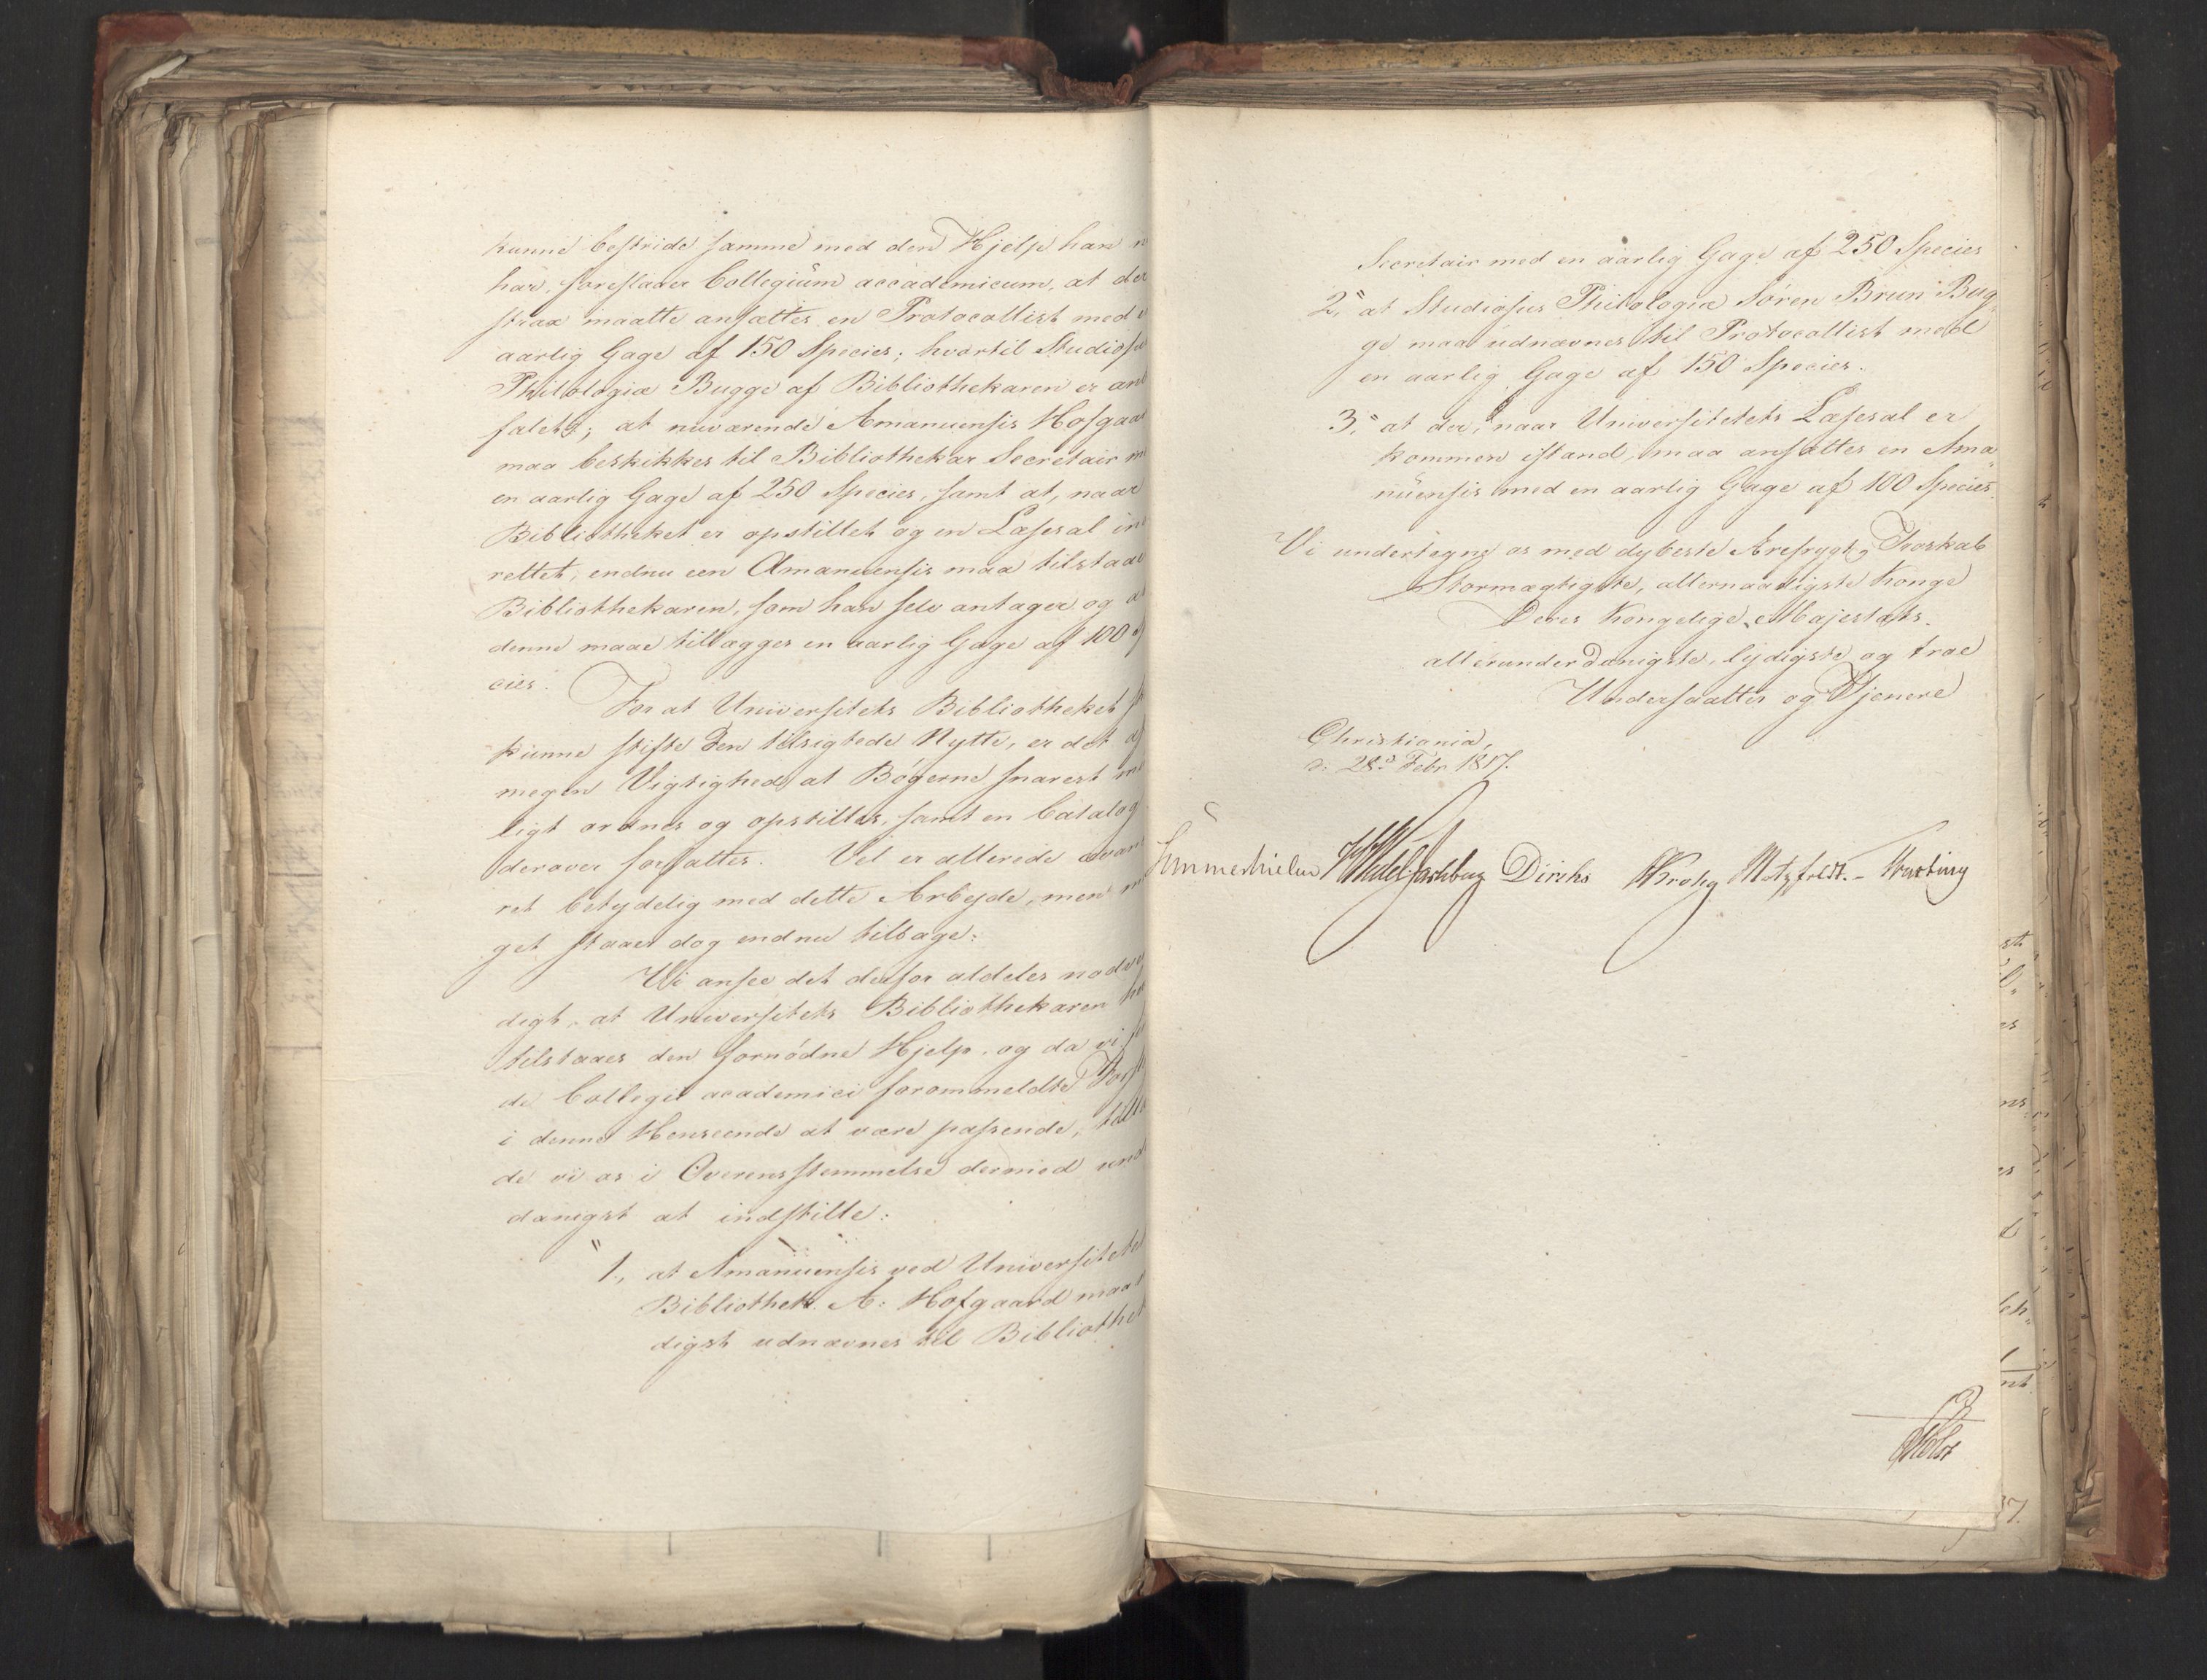 kunne bestride samme med den Hjelp han n
har, foreslaaer Collegium accademicum, at der
strax maatte ansættes en Protocollist med e
aarlig Gage af 150 Species; hvortil Studiosu
Philologiæ Bugge af Bibliothekaren er anb
falet; at nuværende Amanuensis Hofgaar
maa beskikkes til Bibliothekar Secretair m
en aarlig Gage af 250 Species, samt at, naar
Bibliotheket er opstillet og en Læsesal ind
rettet, endnu een Amanuensis maa tilstaae
Bibliothekaren, som han selv antager og at
denne maae tillægges en aarlig Gage af 100 S
cies.
For at Universitets Bibliotheket sk
kunne stifte den tilsigtede Nytte, er det af
megen Vigtighed at Bøgerne snarest mu
ligt ordnes og opstilles, samt en Catalog
derover forfattes. Vel er allerede avan
ret betydelig med dette Arbejde, men me
get staaer dog endnu tilbage.
Vi ansee det derfor aldeles nødve
digt, at Universitets Bibliothekaren
tilstaaes den fornødne Hjelp, og da vi
de Collegii academici forommeldte Forsl
i denne Henseende at være passende,
de vi os i Overensstemmelse dermed und
danigst at indstille:
"1., at Amanuensis ved Universitetet
Bibliothek A: Hofgaard maa
digst udnævnes til Bibliothek
Secretair med en aarlig Gage af 250 Species
2," at Studiosus Philologiæ Søren Brun Bug-
ge maa udnævnes til Protocollist med
en aarlig Gage af 150 Species.
3," at der, naar Universitetets Læsesal er
kommen istand, maa ansættes en Ama
nuensis med en aarlig Gage af 100 Species"
Vi undertegne os med dybeste Ærefrygt og Troskab
Stormægtigste, allernaadigste Konge
Deres Kongelige Majestæts
allerunderdanigste, lydigste og troe
Undersaatter og Tjenere
Christiania,
d: 28d Febr 1817.
Sommerhielm HWedelJarlsberg Diriks CKrohg Motzfeldt. - Treschow
Holst